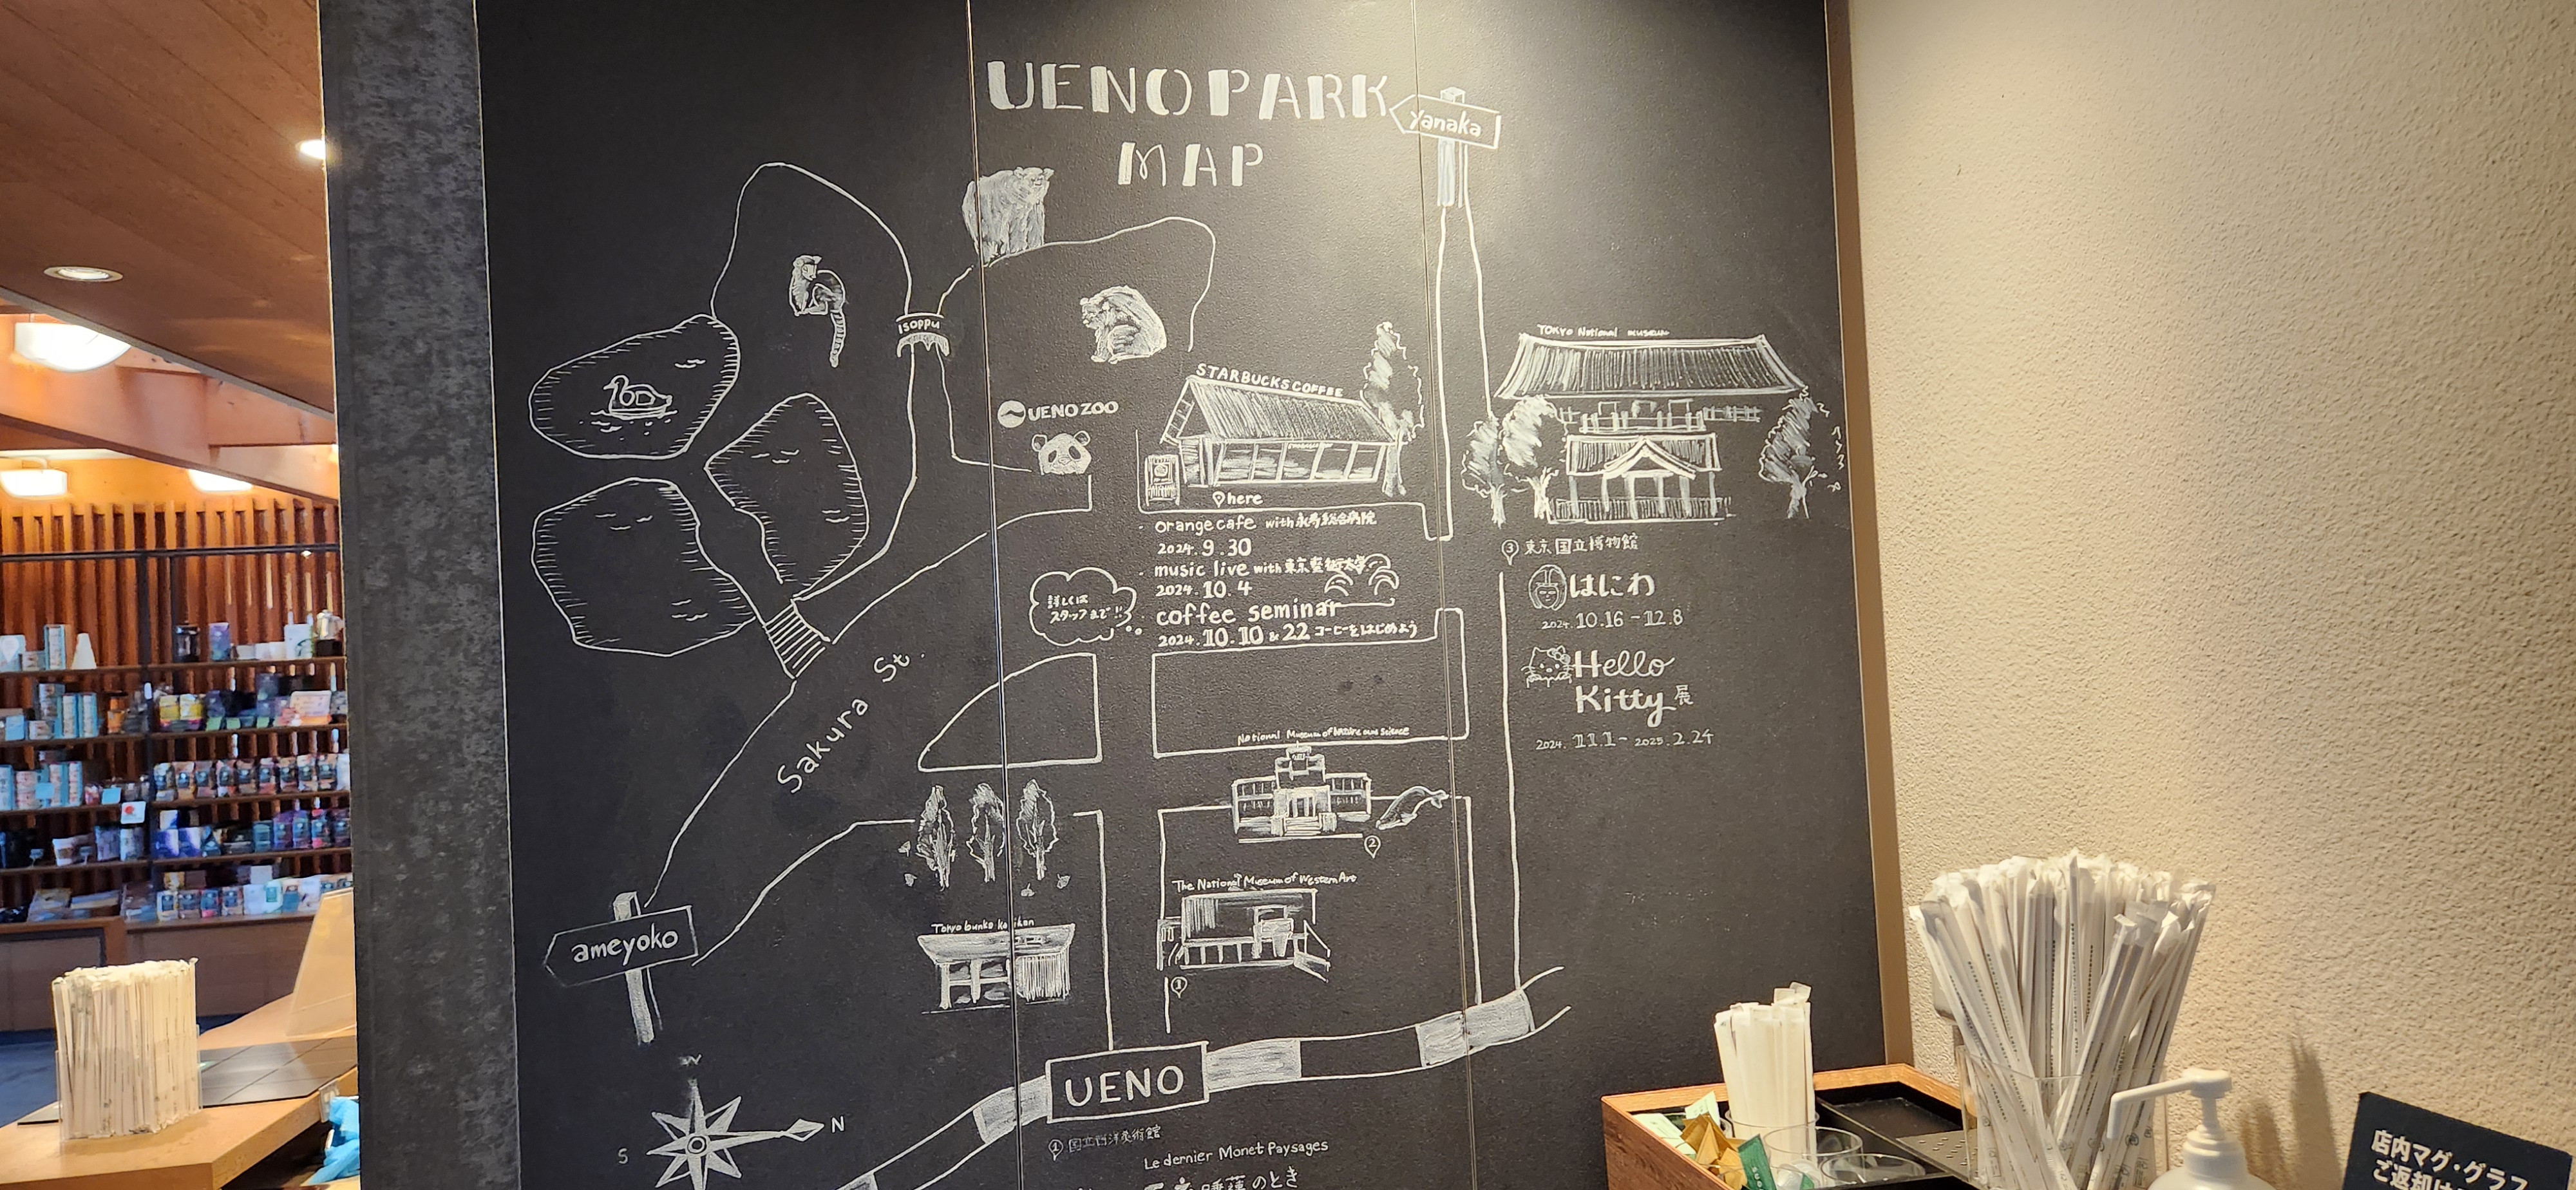 UENO PARK
MAP
yanaka
isoppu
UENO ZOO
STARBUCKS COFFEE
here
TOKYO National museum
orange cafe with 永寿総合病院
2024. 9.30
music live with 東京藝術大学
2024. 10. 4
coffee seminar
2024. 10.10 & 22 コーヒーをはじめよう
詳しくは
スタッフまで!!
③ 東京国立博物館
はにわ
2024. 10.16 - 12.8
Hello
Kitty展
2024. 11.1 - 2025. 2.24
Sakura St.
National Museum of Nature and Science
②
The National Museum of Western Art
①
Tokyo bunka kaikan
ameyoko
UENO
W
N
S
① 国立西洋美術館
Le dernier Monet Paysages
睡蓮のとき
店内マグ・グラス
ご返却は